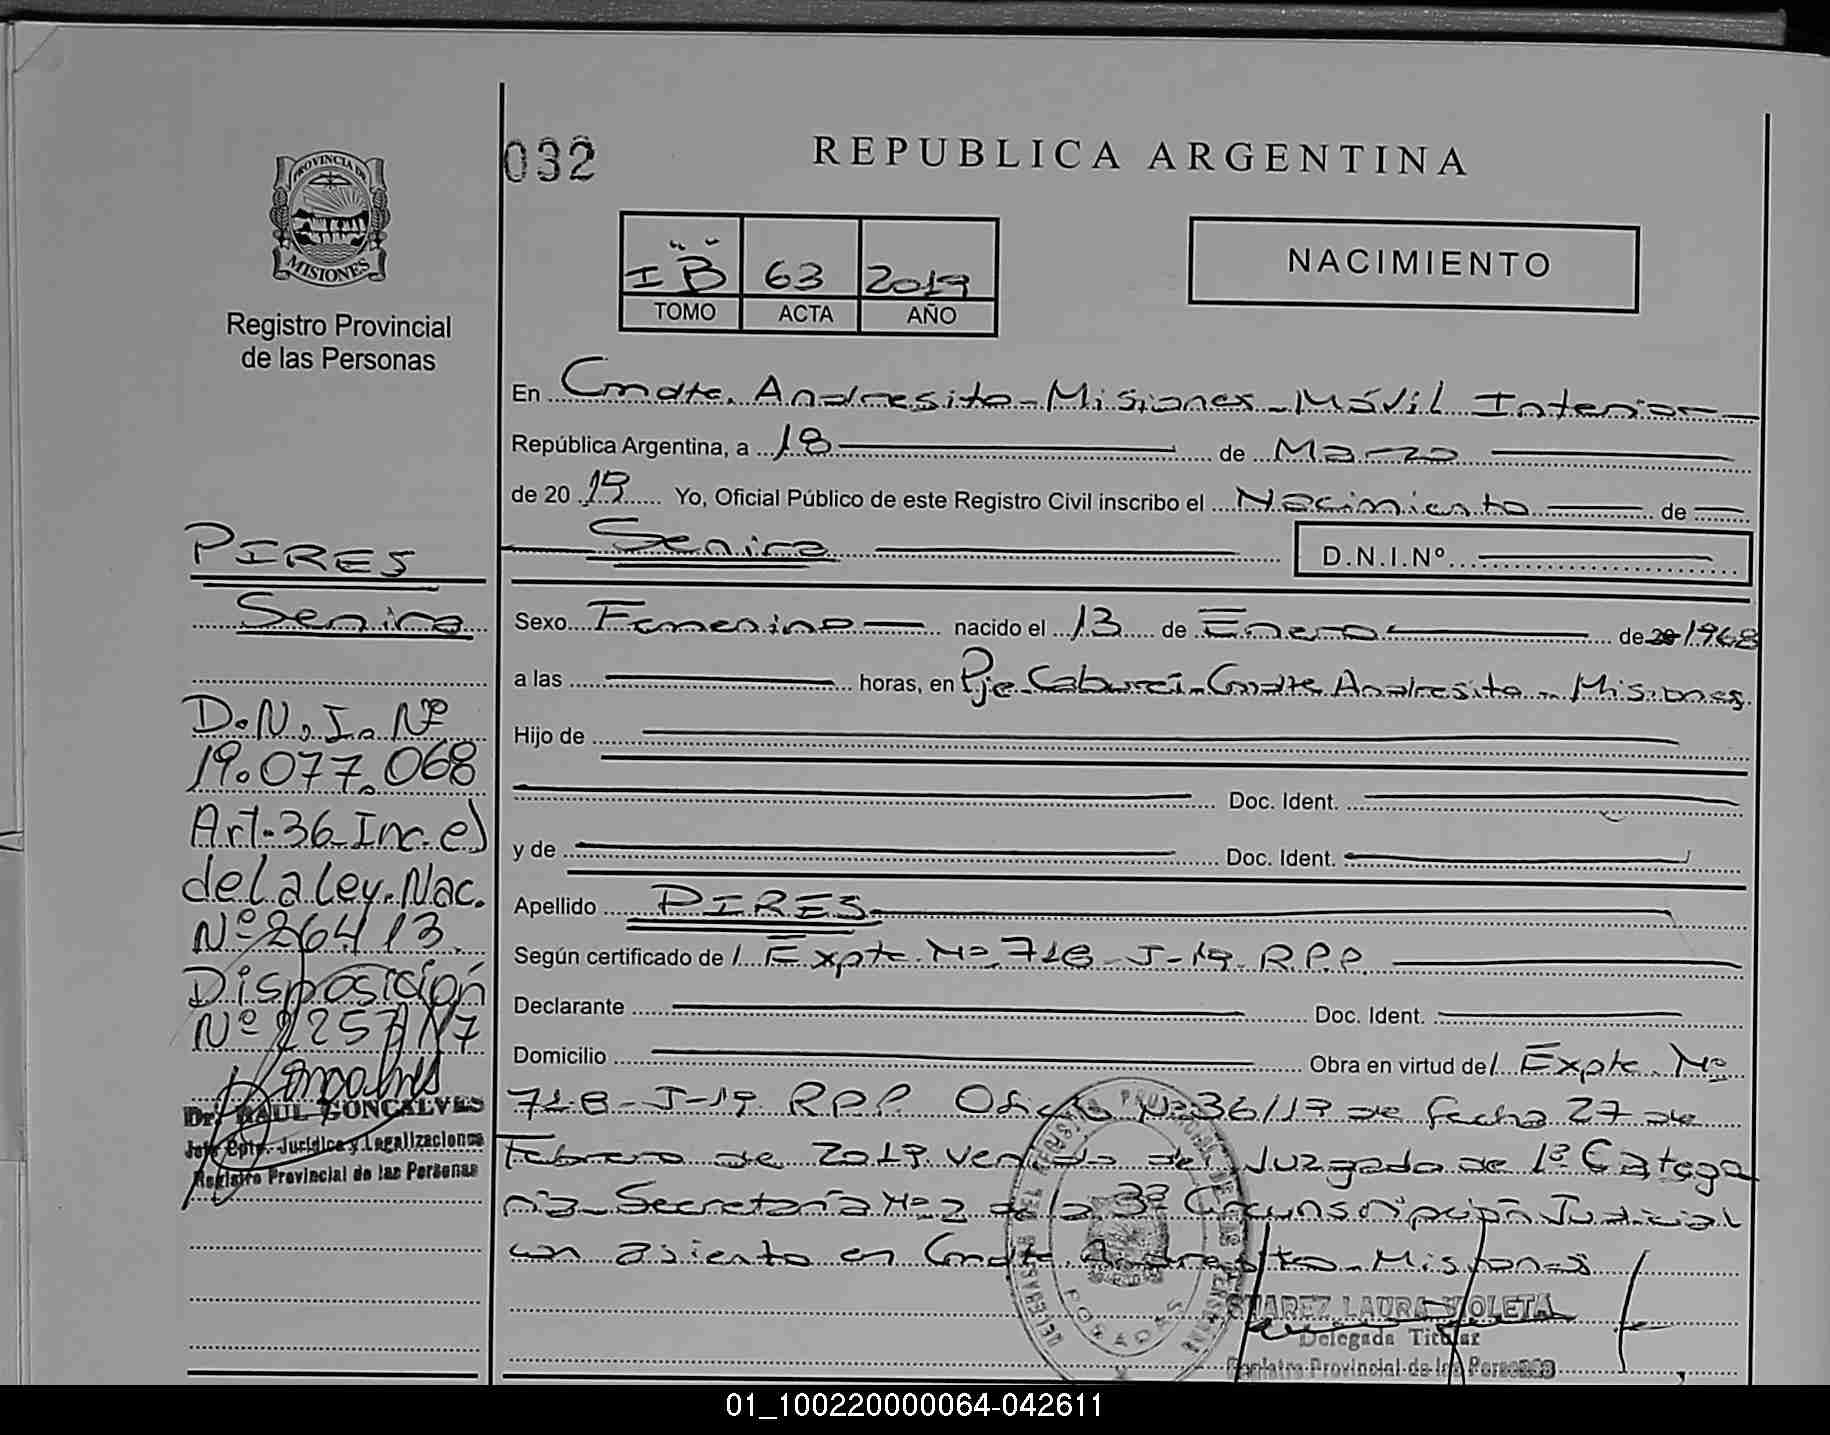 032
REPUBLICA ARGENTINA
PROVINCIA DE
MISIONES
Registro Provincial
de las Personas
I "B" 63 2019
TOMO ACTA AÑO
NACIMIENTO
En Cmdte. Andresito - Misiones - Móvil Interior
República Argentina, a 18 de Marzo
de 20 19 Yo, Oficial Público de este Registro Civil inscribo el Nacimiento de
Senira
D.N.I.Nº
Sexo Femenino nacido el 13 de Enero de 20 1968
a las horas, en Pje. Caburei - Cmdte. Andresito - Misiones
Hijo de
Doc. Ident.
y de Doc. Ident.
Apellido PIRES
Según certificado de / Expte. Nº 718 - J - 19 - R.P.P.
Declarante Doc. Ident.
Domicilio Obra en virtud de / Expte. Nº
718 - J - 19 R.P.P. Oficio Nº 36/19 de fecha 27 de
Febrero de 2019 venido del Juzgado de 1º Catego
ria - Secretaría Nº 2 de la 3ª Circunscripción Judicial
con asiento en Cmdte. Andresito - Misiones
SUAREZ LAURA VIOLETA
Delegada Titular
Registro Provincial de las Personas
POSADAS
PIRES
Senira
D.N.I. Nº
19.077.068
Art. 36 Inc. e)
de la Ley. Nac.
Nº 26413.
Disposición
Nº 2257/17
Dr. RAUL GONCALVES
Jefe Dpto. Jurídica y Legalizaciones
Registro Provincial de las Personas
01_100220000064-042611